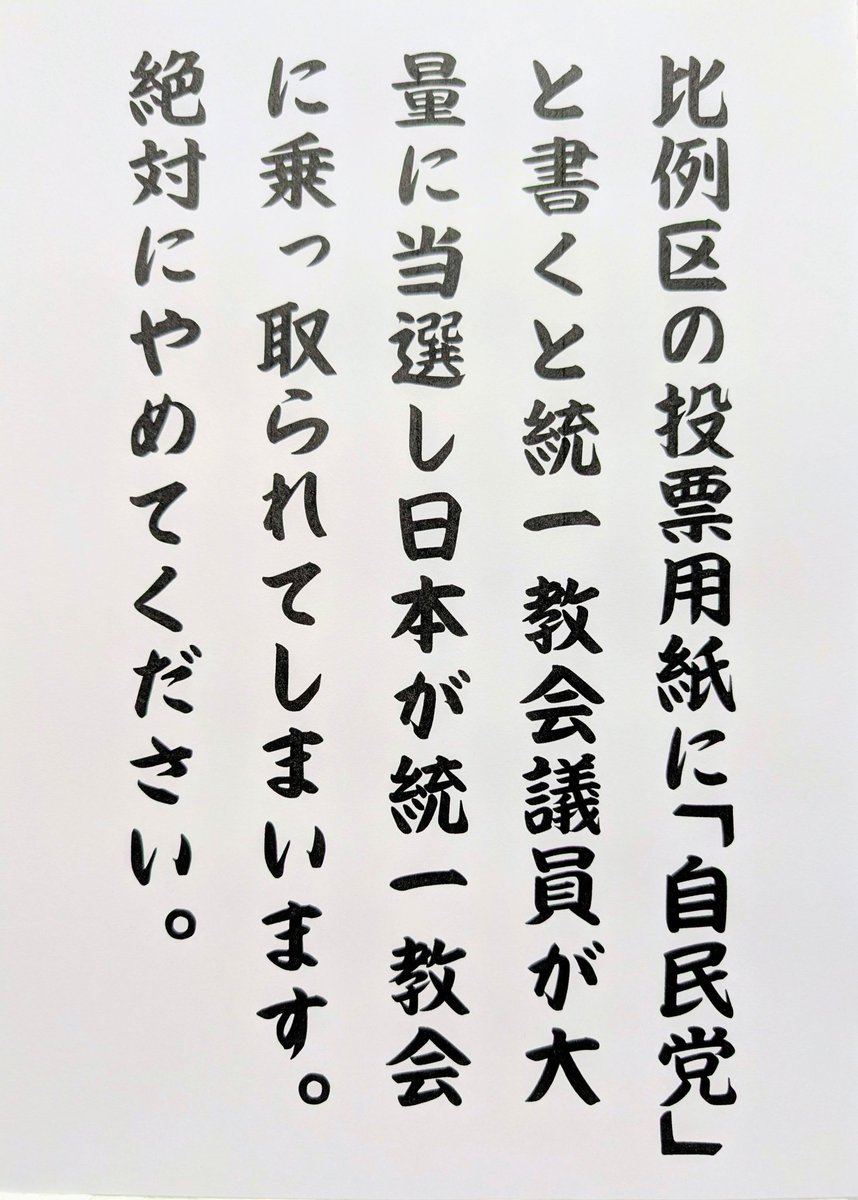 比例区の投票用紙に「自民党」
と書くと統一教会議員が大
量に当選し日本が統一教会
に乗っ取られてしまいます。
絶対にやめてください。